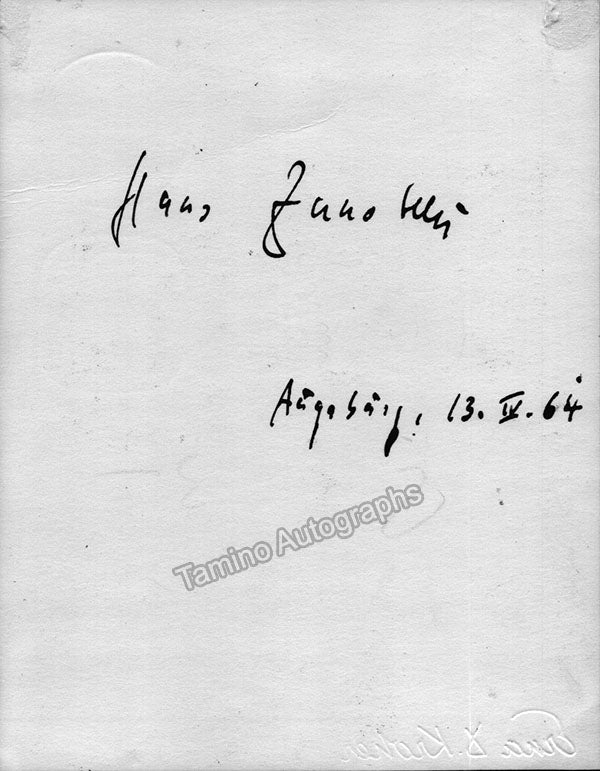 Hans Zanotelli
Augsburg, 13. IV. 64
Tamino Autographs